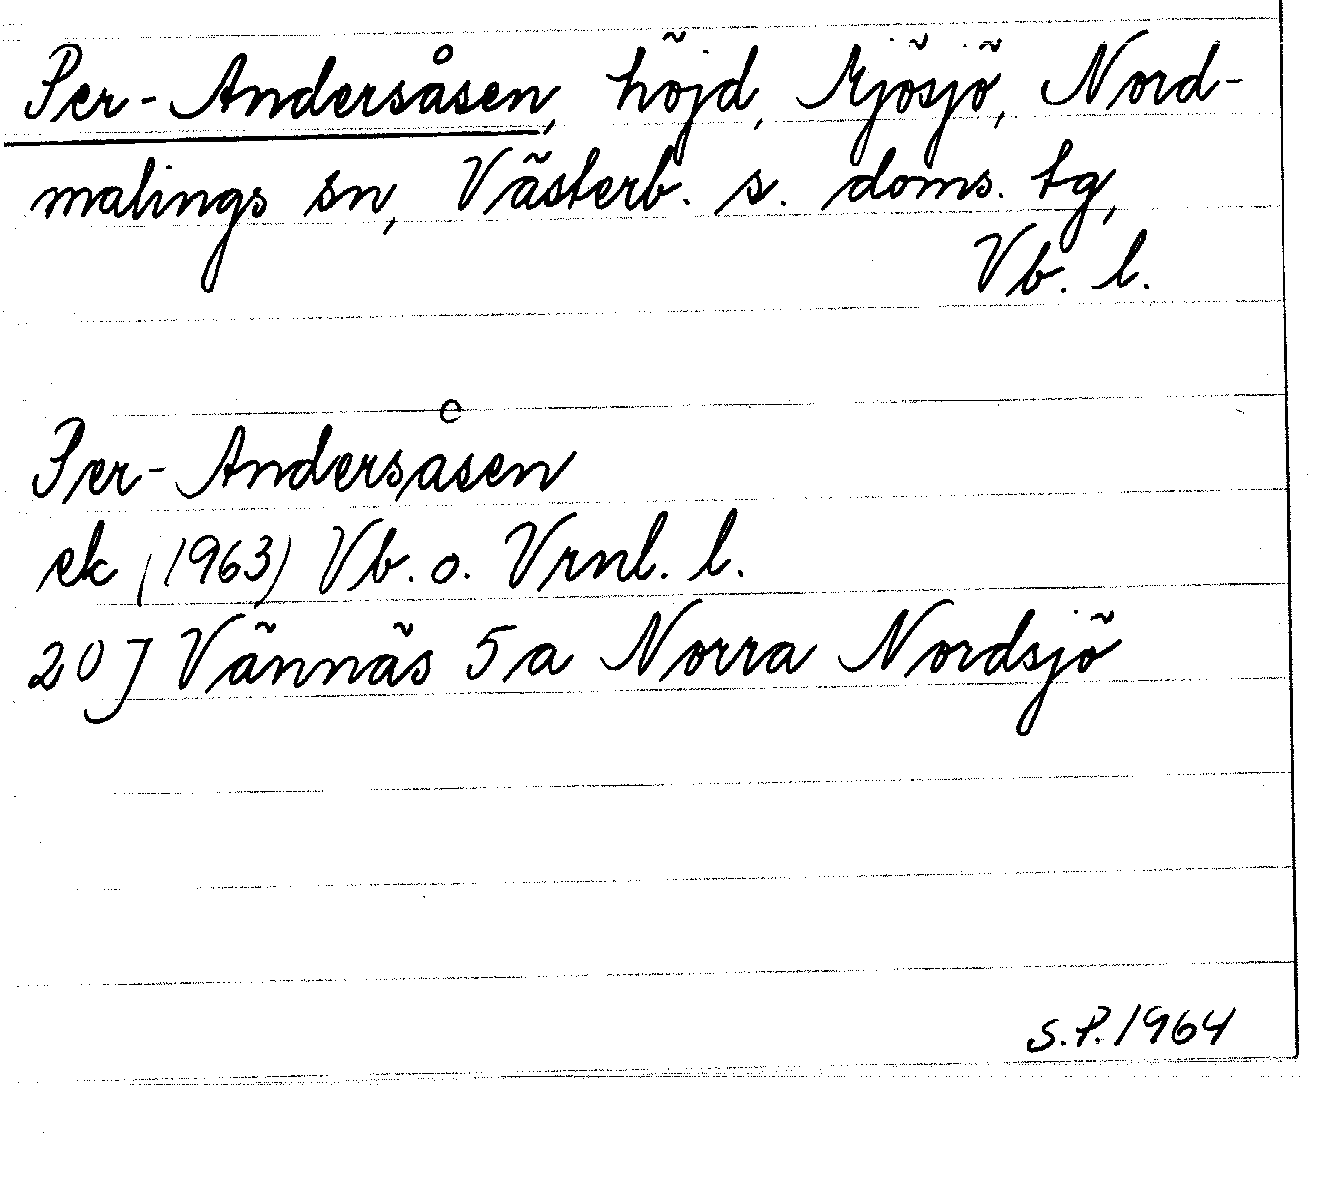 Per-Andersåsen, höjd, Mjösjö, Nord-
malings sn, Västerb. s. doms. tg,
Vb. l.
Per-Andersåsen
ek (1963) Vb. o. Vrml. l.
20 J Vännäs 5a Norra Nordsjö
S.P. 1964